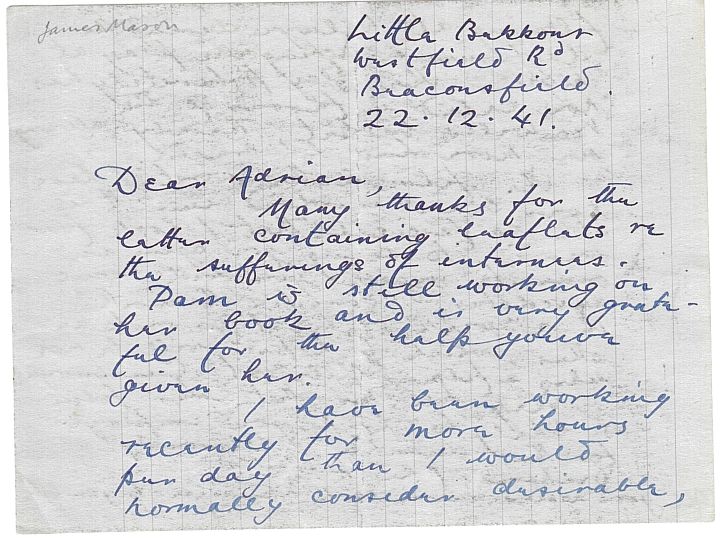 James Mason
Little Bekkons
Westfield Rd
Beaconsfield.
22.12.41.
Dear Adrian,
Many thanks for the
letter containing leaflets re
the sufferings of internees.
Pam is still working on
her book and is very grate-
ful for the help youve
given her.
I have been working
recently for more hours
per day than I would
normally consider desirable,